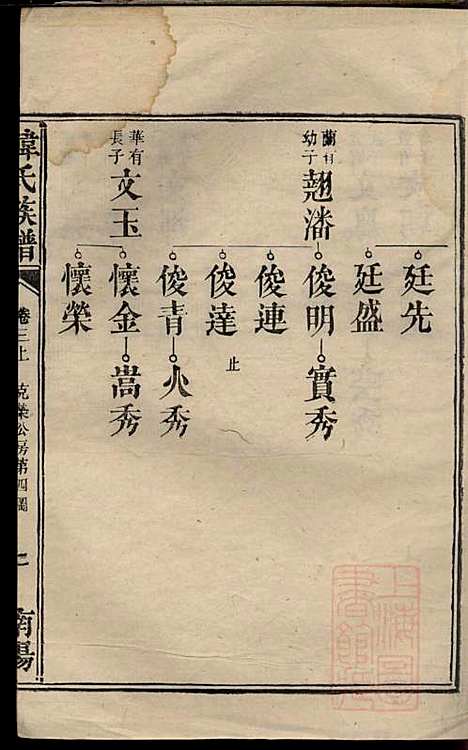 廷先
廷盛
蘭有
幼子
翹潘
俊明
實秀
俊連
俊達
止
俊青
火秀
華有
長子
文玉
懷金
嵩秀
懷榮
韓氏族譜
卷三上
克榮公房第四圖
七
南陽
上海圖
書館藏